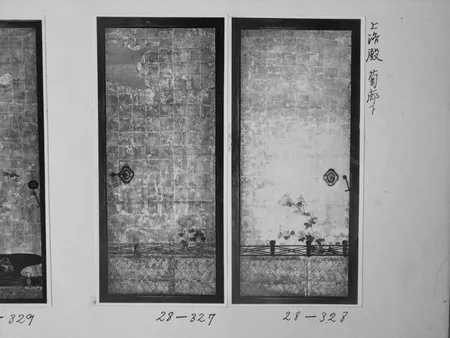 上洛殿 菊廊下
-329
28-327
28-328